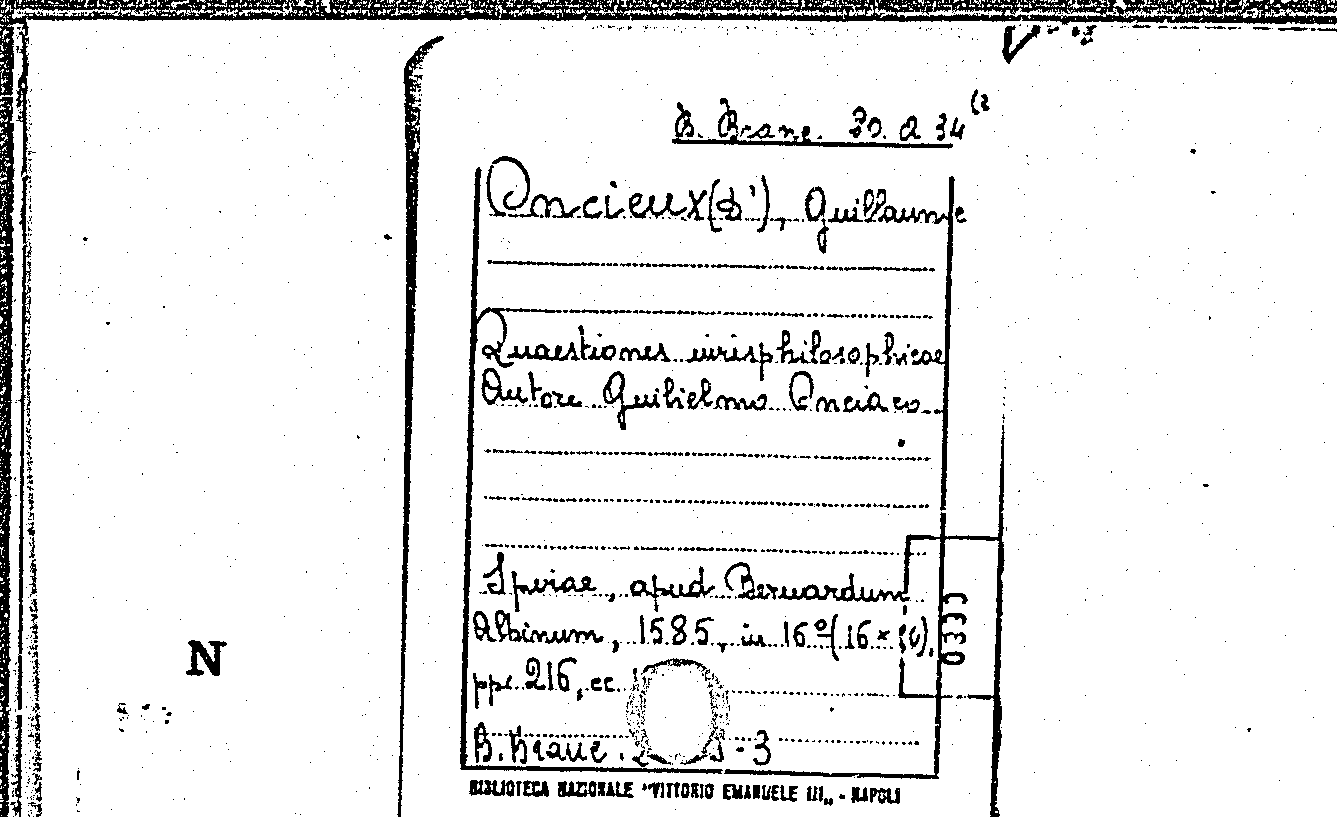 B. Branc. 30. Q 34 (2
Oncieux (D'), Guillaume
Quaestiones iurisphilosophicae
Autore Guilielmo Onciaco
Spirae, apud Bernardum
Albinum, 1585, in 16º (16 ×
pp. 216, cc.
B. Branc. - 3
N
BIBLIOTECA NAZIONALE "VITTORIO EMANUELE III„ - NAPOLI